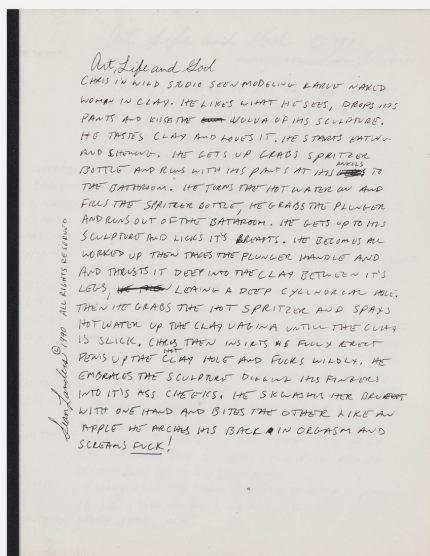 Art, Life and God
CHRIS IN WILD STUDIO SEEN MODELING LARGE NAKED
WOMAN IN CLAY. HE LIKES WHAT HE SEES, DROPS HIS
PANTS AND KISSES THE VULVA OF HIS SCULPTURE.
HE TASTES CLAY AND LOVES IT. HE STARTS EATING
AND . HE GETS UP GRABS SPRITZER
BOTTLE AND RUNS WITH HIS PANTS AT HIS ANKELS TO
THE BATHROOM. HE TURNS THE HOT WATER ON AND
FILLS THE SPRITZER BOTTLE, HE GRABS THE PLUNGER
AND RUNS OUT OF THE BATHROOM. HE GETS UP TO HIS
SCULPTURE AND LICKS IT'S BREASTS. HE BECOMES ALL
WORKED UP THEN TAKES THE PLUNGER HANDLE AND
AND THRUSTS IT DEEP INTO THE CLAY BETWEEN IT'S
LEGS, LEAVING A DEEP CYLINDRICAL HOLE.
THEN HE GRABS THE HOT SPRITZER AND SPAYS
HOT WATER UP THE CLAY VAGINA UNTILL THE CLAY
IS SLICK. CHRIS THEN INSIRTS HIS FULLY ERECT
PENIS UP THE HOT CLAY HOLE AND FUCKS WILDLY. HE
EMBRACES THE SCULPTURE DIGGING HIS FINGERS
INTO IT'S ASS CHEEKS. HE SKWASHES HER BREAST
WITH ONE HAND AND BITES THE OTHER LIKE AN
APPLE HE ARCHES HIS BACK IN ORGASM AND
SCREAMS FUCK!
Sean Landers © 1990 ALL RIGHTS RESERVED